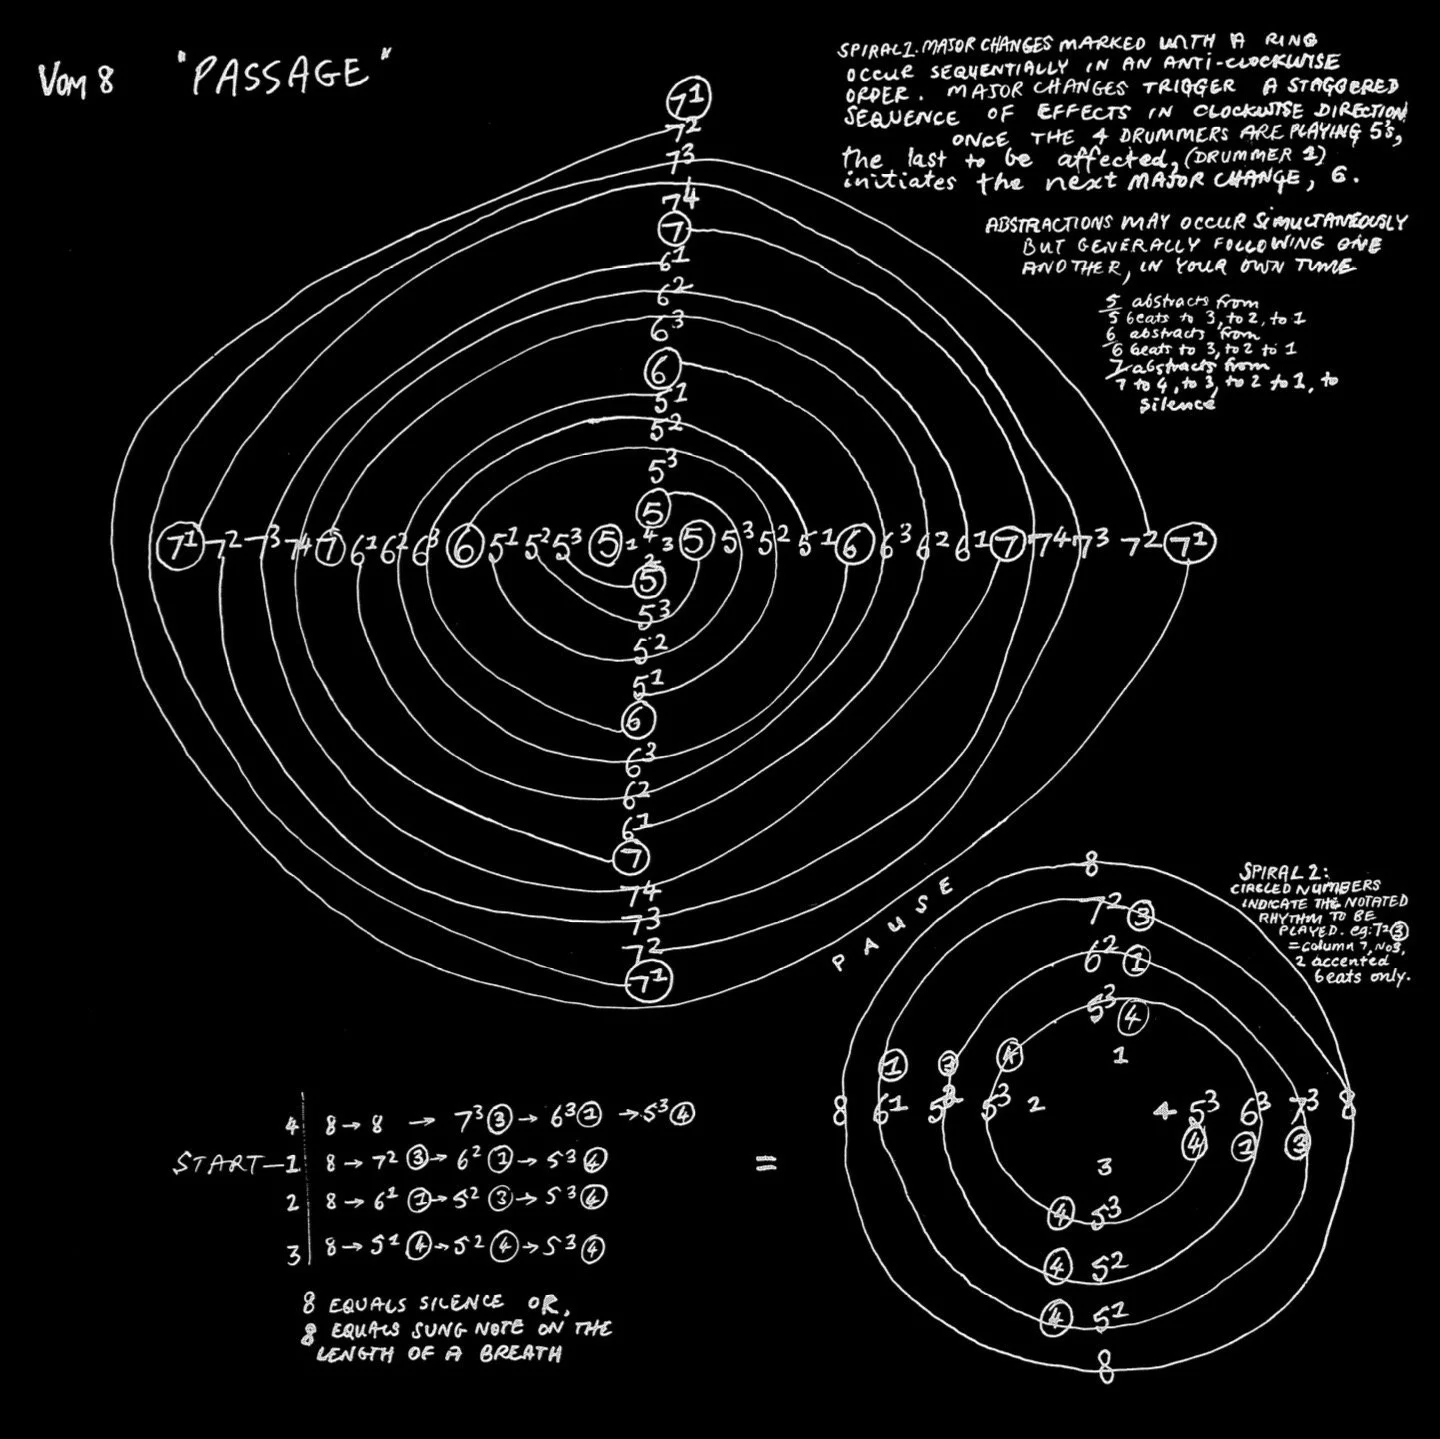 VOM 8 "PASSAGE"
SPIRAL 1. MAJOR CHANGES MARKED WITH A RING
OCCUR SEQUENTIALLY IN AN ANTI-CLOCKWISE
ORDER. MAJOR CHANGES TRIGGER A STAGGERED
SEQUENCE OF EFFECTS IN CLOCKWISE DIRECTION
ONCE THE 4 DRUMMERS ARE PLAYING 5's,
the last to be affected, (DRUMMER 1)
initiates the next MAJOR CHANGE, 6.
ABSTRACTIONS MAY OCCUR SIMULTANEOUSLY
BUT GENERALLY FOLLOWING ONE
ANOTHER, IN YOUR OWN TIME
5 abstracts from
5 beats to 3, to 2, to 1
6 abstracts from
6 beats to 3, to 2 to 1
7 abstracts from
7 to 4, to 3, to 2 to 1, to
silence
7¹
7²
7³
7⁴
7
6¹
6²
6³
6
5¹
5²
5³
5
7¹ 7² 7³ 7⁴ 7 6¹ 6² 6³ 6 5¹ 5² 5³ 5 1 4 3 5 5³ 5² 5¹ 6 6³ 6² 6¹ 7 7⁴ 7³ 7² 7¹
2
5
5³
5²
5¹
6
6³
6²
6¹
7
7⁴
7³
7²
7¹
PAUSE
SPIRAL 2:
CIRCLED NUMBERS
INDICATE THE NOTATED
RHYTHM TO BE
PLAYED. eg: 7²③
= column 7, No3,
2 accented
beats only.
8
7² ③
6² ①
5³ ④
① ③ ④ 1
8 6¹ 5² 5³ 2 4 5³ 6³ 7³ 8
④ ① ③
3
④ 5³
④ 5²
④ 5¹
8
4 8 → 8 → 7³ ③ → 6³ ① → 5³ ④
START — 1 8 → 7² ③ → 6² ① → 5³ ④
2 8 → 6¹ ① → 5² ③ → 5³ ④
3 8 → 5¹ ④ → 5² ④ → 5³ ④
=
8 EQUALS SILENCE OR,
8 EQUALS SUNG NOTE ON THE
LENGTH OF A BREATH